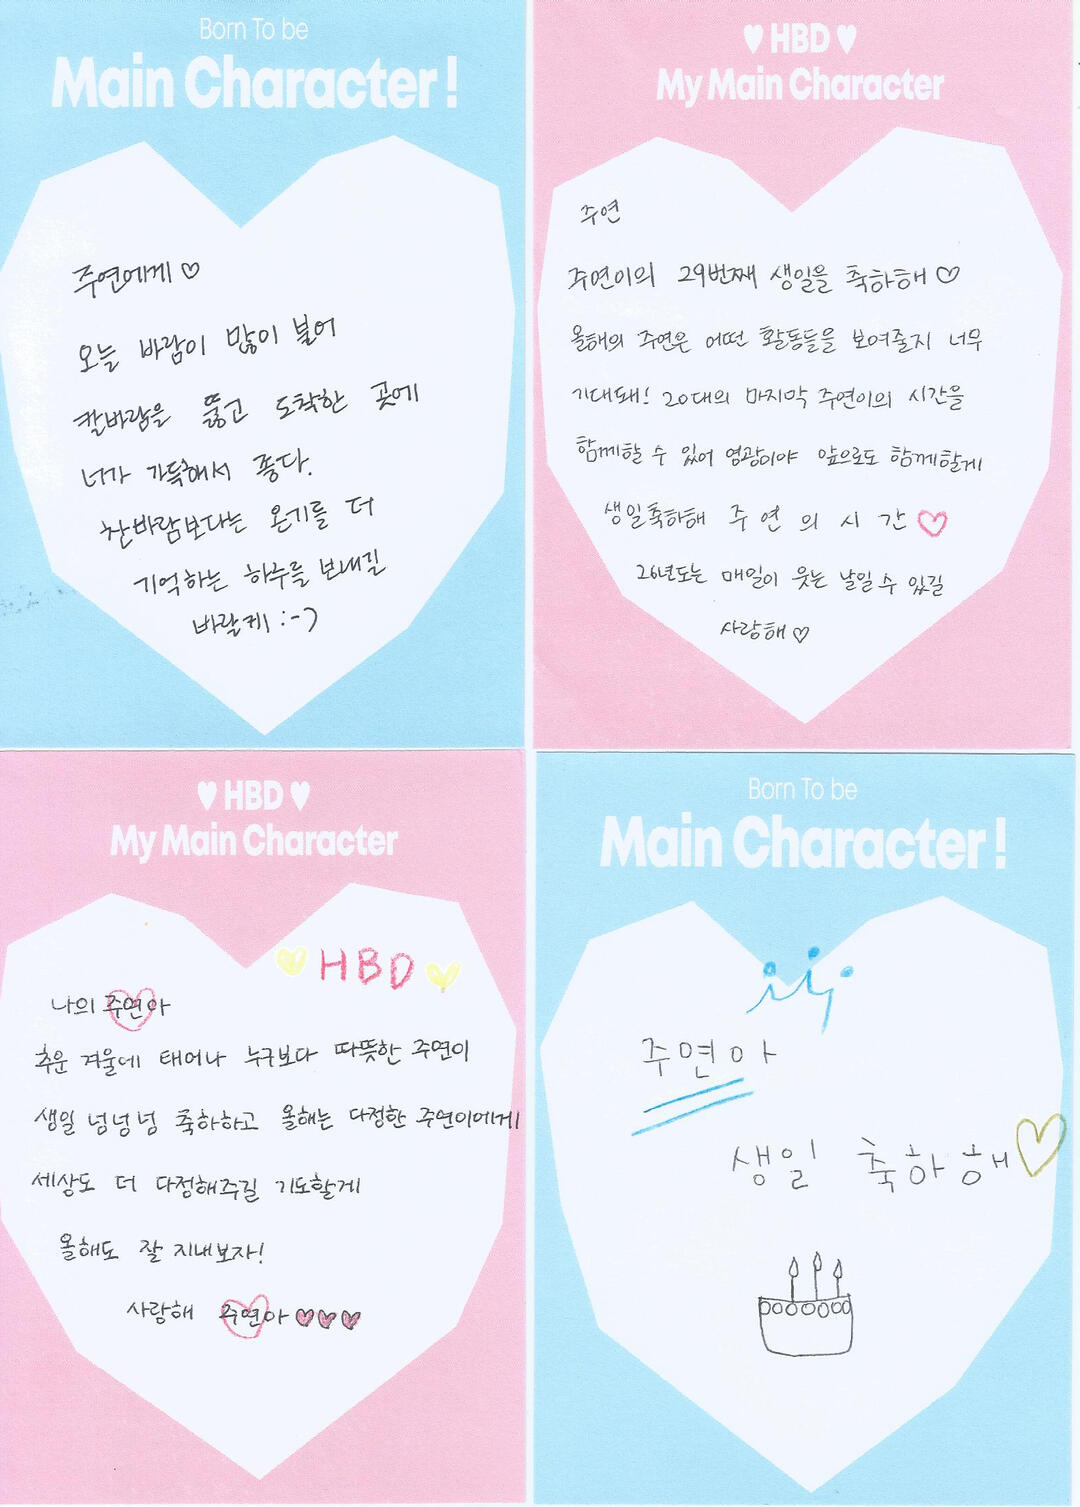 Born To be
Main Character!
주연에게♡
오늘 바람이 많이 불어
칼바람을 뚫고 도착한 곳에
너가 가득해서 좋다.
찬바람보다는 온기를 더
기억하는 하루를 보내길
바랄게 :-)
♥ HBD ♥
My Main Character
주연
주연이의 29번째 생일을 축하해♡
올해의 주연은 어떤 활동들을 보여줄지 너무
기대돼! 20대의 마지막 주연이의 시간을
함께할 수 있어 영광이야 앞으로도 함께할게
생일축하해 주 연 의 시 간♡
26년도는 매일이 웃는 날일 수 있길
사랑해♡
♥ HBD ♥
My Main Character
♡ HBD ♡
나의 주연아
추운 겨울에 태어나 누구보다 따뜻한 주연이
생일 넘넘넘 축하하고 올해는 다정한 주연이에게
세상도 더 다정해주길 기도할게
올해도 잘 지내보자!
사랑해 주연아♥♥♥
Born To be
Main Character!
주연아
생일 축하해♡